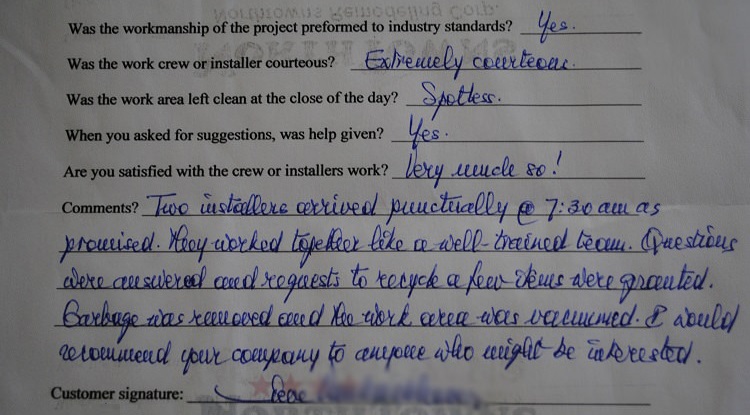 Was the workmanship of the project preformed to industry standards? Yes.
Was the work crew or installer courteous? Extremely courteous.
Was the work area left clean at the close of the day? Spotless.
When you asked for suggestions, was help given? Yes.
Are you satisfied with the crew or installers work? Very much so!
Comments? Two installers arrived punctually @ 7:30 am as
promised. They worked together like a well-trained team. Questions
were answered and requests to recycle a few items were granted.
Garbage was removed and the work area was vacuumed. I would
recommend your company to anyone who might be interested.
Customer signature: